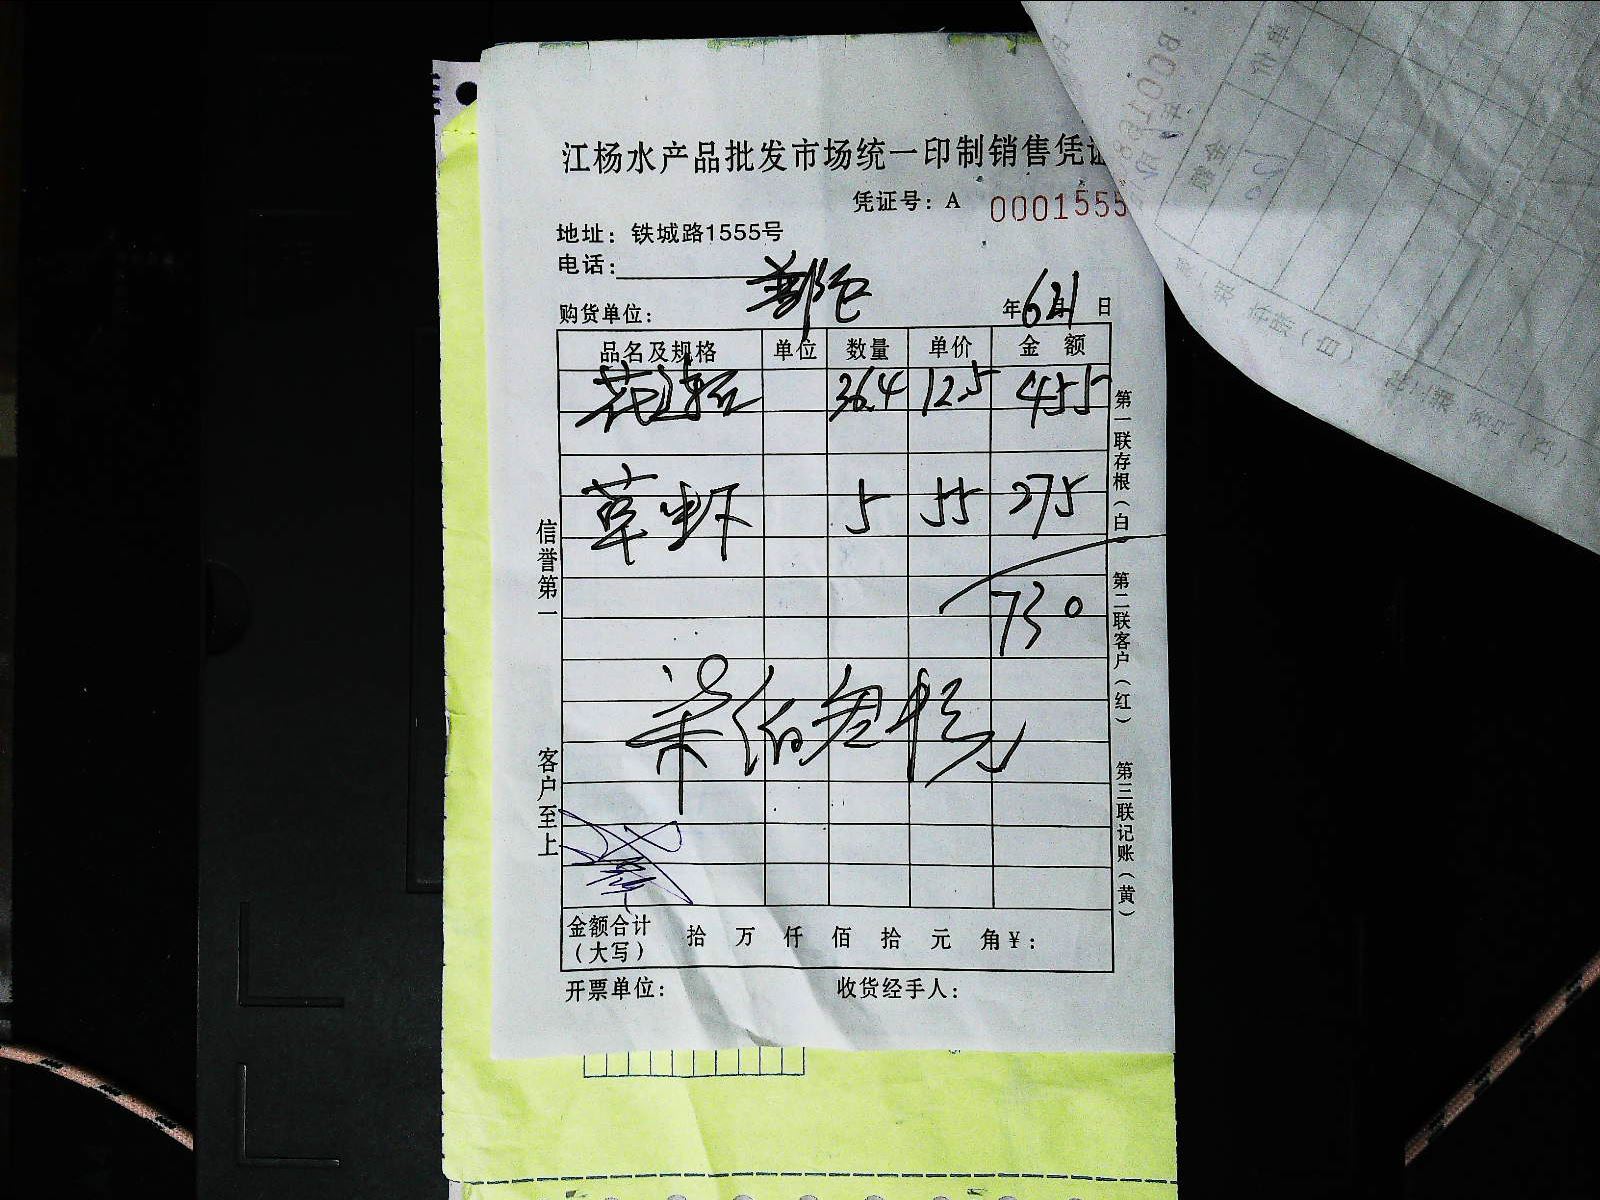 江杨水产品批发市场统一印制销售凭证
凭证号：A 0001555
地址：铁城路1555号
电话：
购货单位： 年6月21日
品名及规格 单位 数量 单价 金额
花 36.4 12.5 455
草虾 5 55 275
730
金额合计（大写） 拾 万 仟 佰 拾 元 角 ¥：
开票单位： 收货经手人：
信誉第一 客户至上
第一联存根（白） 第二联客户（红） 第三联记账（黄）